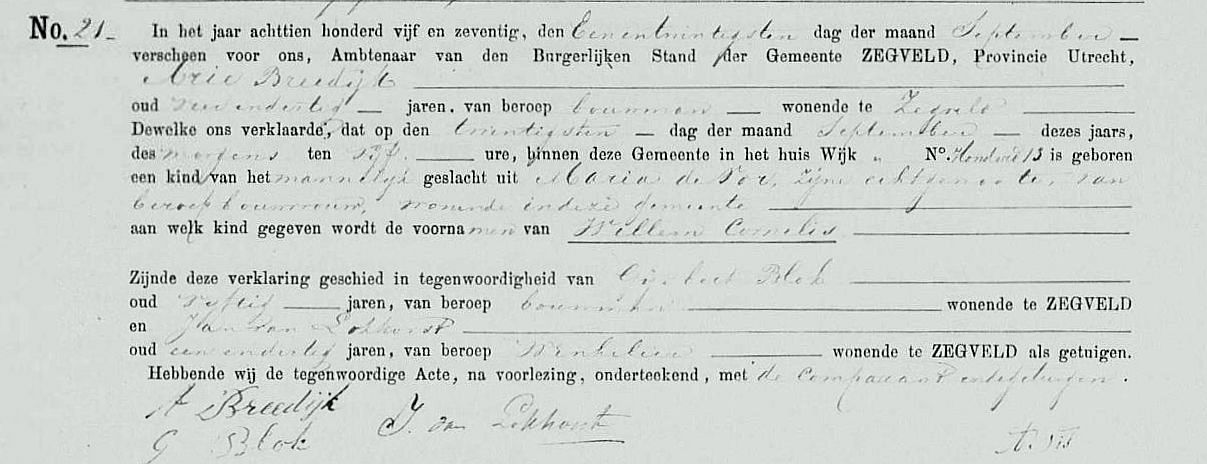 No. 21
In het jaar achttien honderd vijf en zeventig, den Eenentwintigsten dag der maand September
verscheen voor ons, Ambtenaar van den Burgerlijken Stand der Gemeente ZEGVELD, Provincie Utrecht,
Arie Breedijk
oud endertig jaren, van beroep bouwman wonende te Zegveld
Dewelke ons verklaarde, dat op den twintigsten dag der maand September dezes jaars,
des morgens ten vijf ure, binnen deze Gemeente in het huis Wijk „ No. Honderd 13 is geboren
een kind van het mannelijk geslacht uit Maria de Vor, zijne echtgenoote, van
beroep bouwvrouw, wonende in deze gemeente
aan welk kind gegeven wordt de voornamen van Willem Cornelis
Zijnde deze verklaring geschied in tegenwoordigheid van Gijsbert Blok
oud vijftig jaren, van beroep bouwman wonende te ZEGVELD
en Jan van Lokhorst
oud eenendertig jaren, van beroep Winkelier wonende te ZEGVELD als getuigen.
Hebbende wij de tegenwoordige Acte, na voorlezing, onderteekend, met de Comparant en de getuigen.
A Breedijk
J. van Lokhorst
G Blok